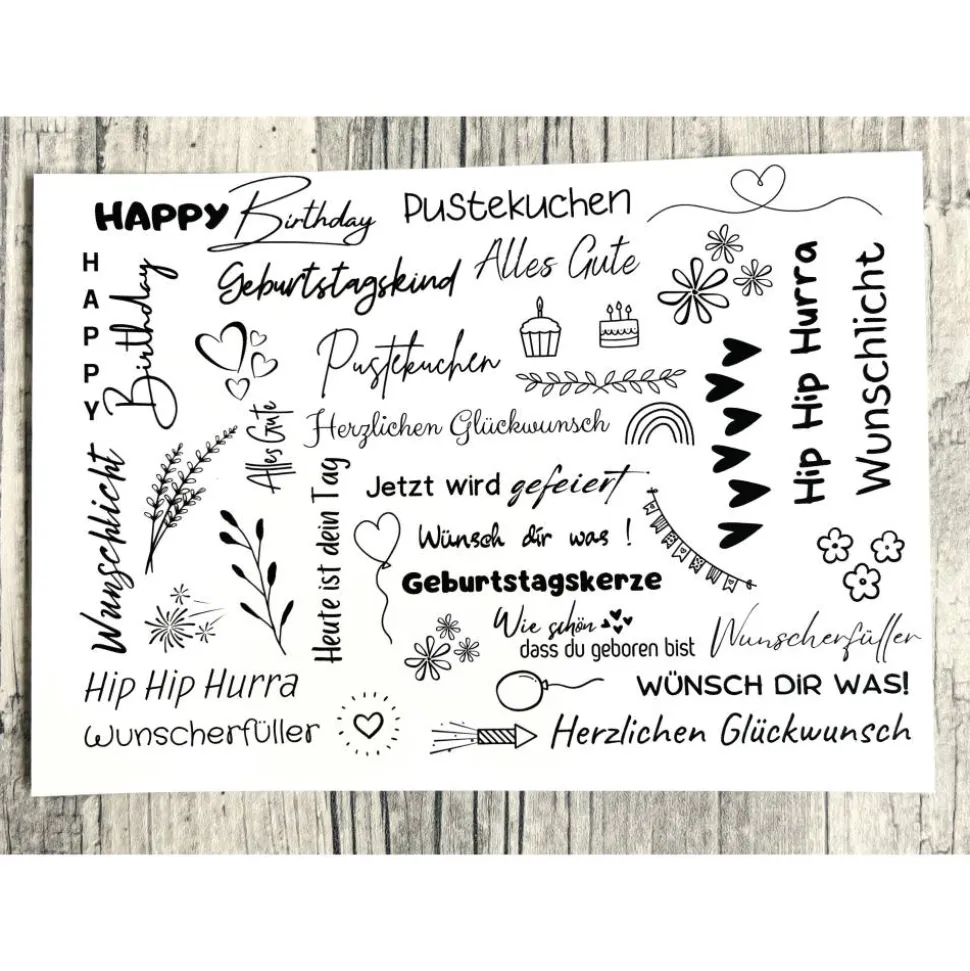 HAPPY Birthday
Pustekuchen
HAPPY Birthday
Geburtstagskind
Alles Gute
Pustekuchen
Hip Hip Hurra
Wunschlicht
Alles Gute
Herzlichen Glückwunsch
Wunschlicht
Heute ist dein Tag
Jetzt wird gefeiert
Wünsch dir was !
Geburtstagskerze
Wie schön
dass du geboren bist
Wunscherfüller
Hip Hip Hurra
WÜNSCH DiR WAS!
Wunscherfüller
Herzlichen Glückwunsch